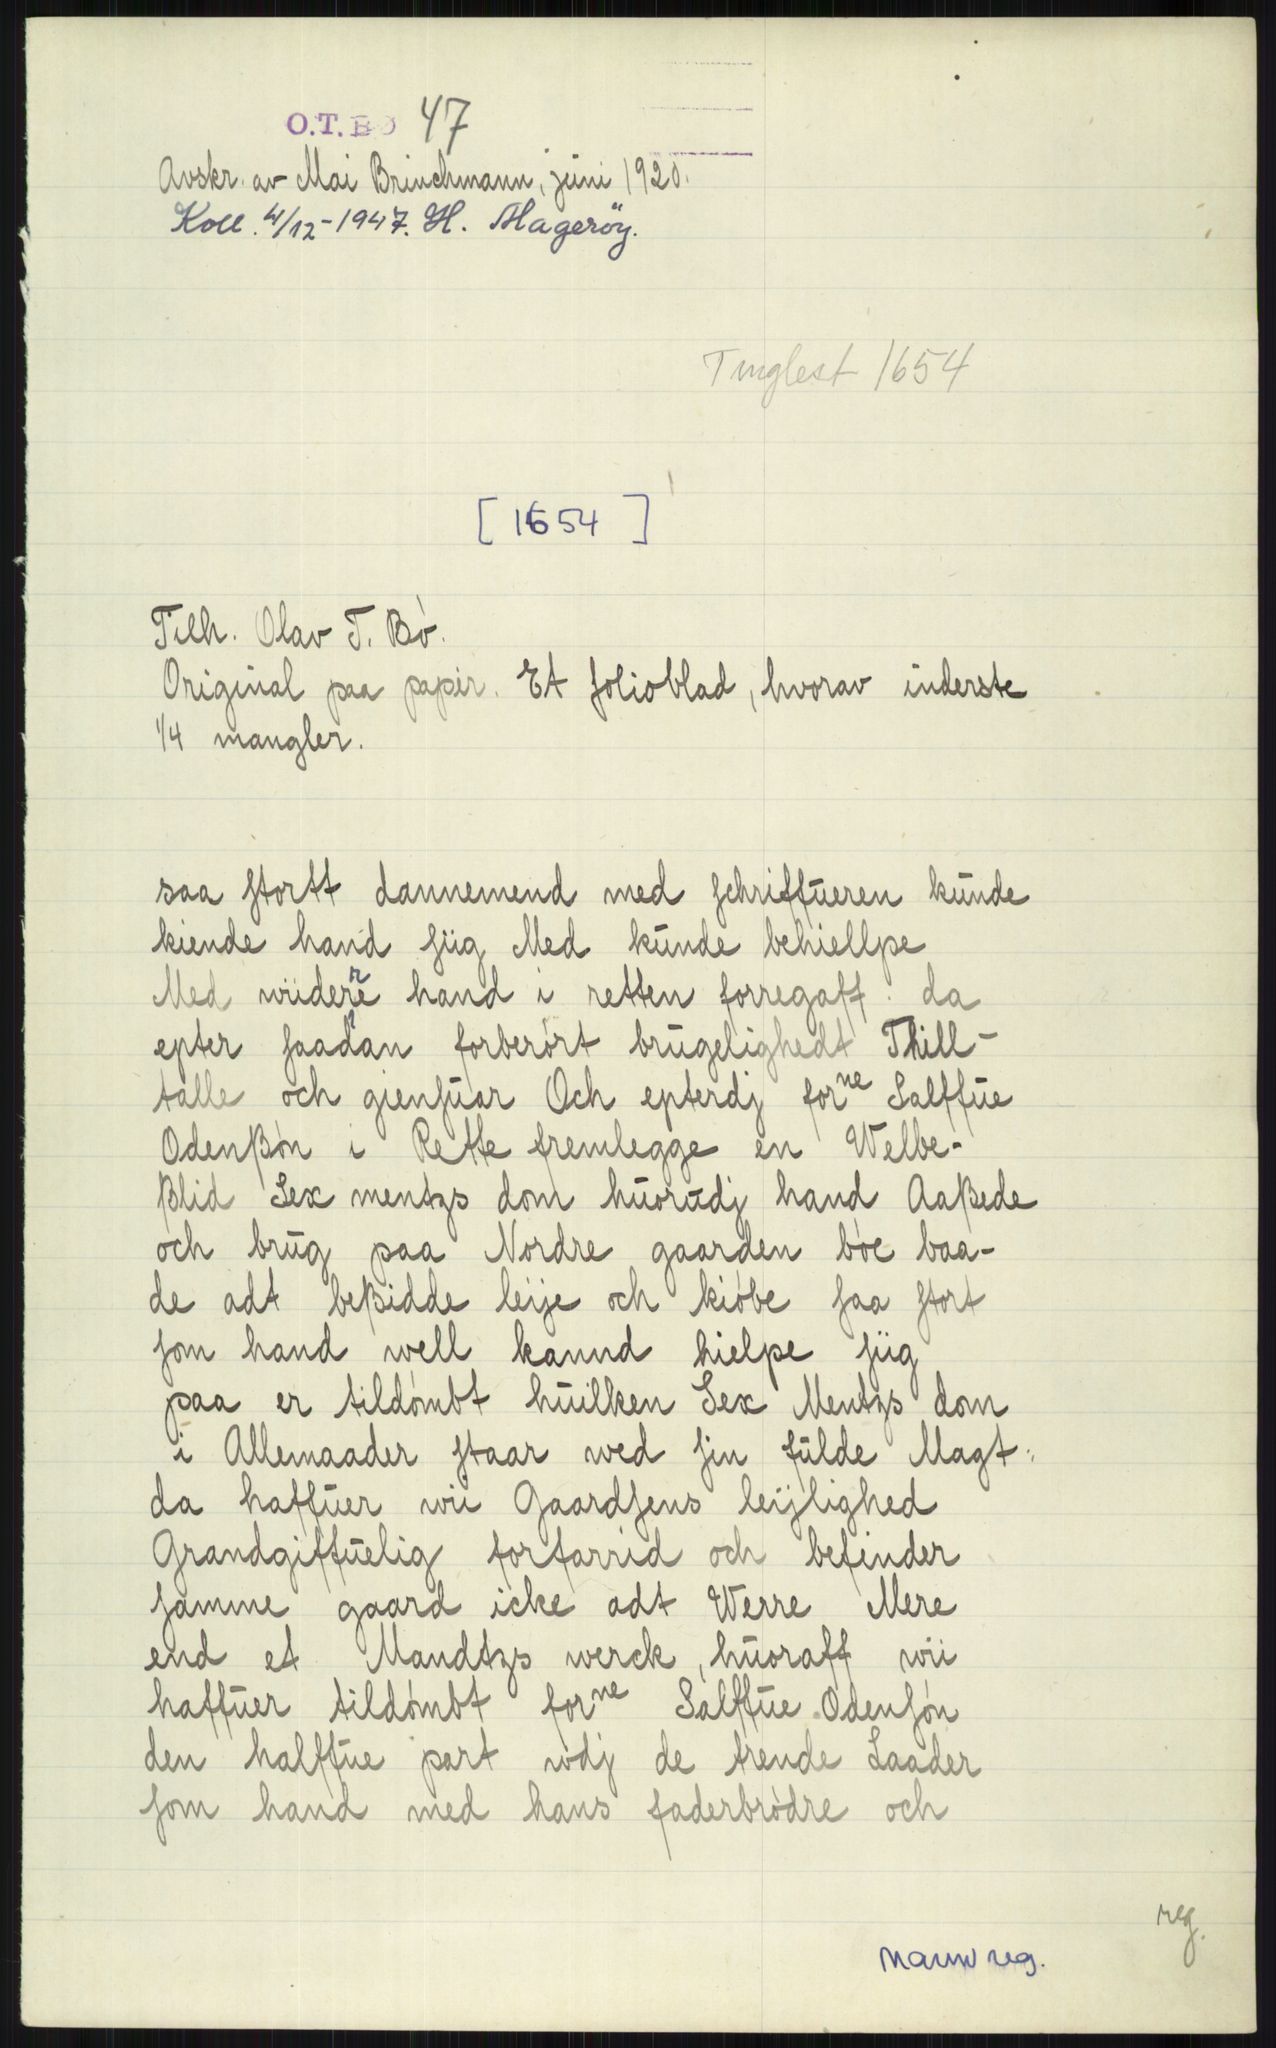 O.T. BØ 47
Avskr. av Mai Brinchmann, juni 1920.
Koll. 4/12-1947. H. Magerøy.
Tinglest 1654
[ 1654 ]
Tilh. Olav T. Bø.
Original paa papir. Et folioblad, hvorav inderste
1/4 mangler.
saa stortt dannemend med schriffueren kunde
kiende hand siig Med kunde behiellpe
Med wiidere hand i retten forregaff. da
epter saadan forberørt brugelighedt Thill-
talle och giensuar Och epterdj forne Salffue
Odenßøn i Rette fremlegge en Welbe-
ßlid Sex mentzs dom huorudj hand Aaßede
och brug paa Nordre gaarden bøe baa-
de adt beßidde leije och kiøbe saa stort
som hand well kannd hielpe siig
paa er tildømbt huilken Sex Mentzs dom
i Allemaader staar wed sin fulde Magt:
da haffuer wii Gaardsens leijlighed
Grandgiffuelig forfarrid och befinder
samme gaard icke adt Werre Mere
end et Mandtzs werck, huoraff wii
haffuer tildømbt forne Salffue Odensøn
den halffue part wdj de trende Laader
som hand med hans faderbrødre och
reg.
navnreg.